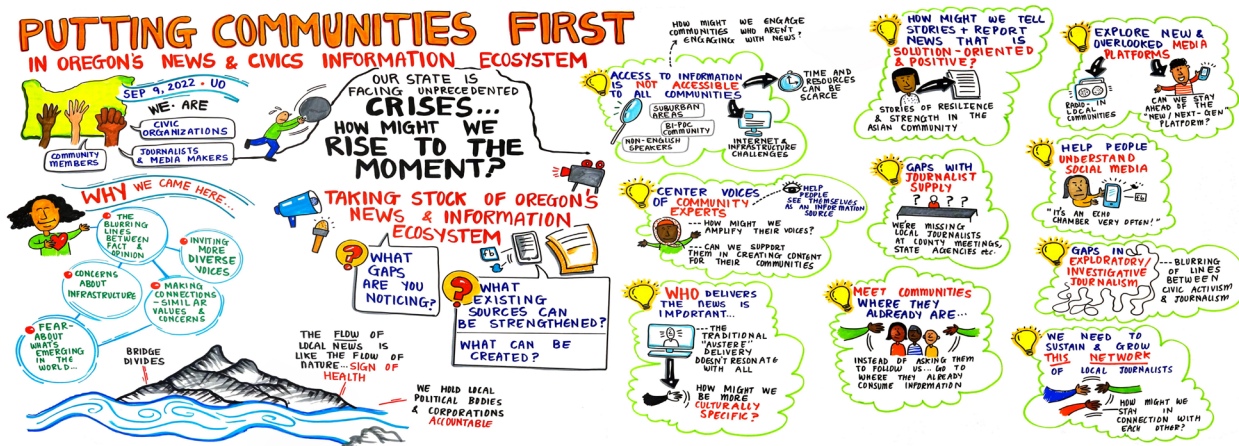 PUTTING COMMUNITIES FIRST
IN OREGON'S NEWS & CIVICS INFORMATION ECOSYSTEM
SEP 9, 2022 · UO
WE· ARE
CIVIC
ORGANIZATIONS
COMMUNITY
MEMBERS
JOURNALISTS
& MEDIA MAKERS
OUR STATE IS
FACING UNPRECEDENTED
CRISES...
HOW MIGHT WE
RISE TO THE
MOMENT?
WHY WE CAME HERE...
THE
BLURRING
LINES
BETWEEN
FACT &
OPINION
INVITING
MORE
DIVERSE
VOICES
CONCERNS
ABOUT
INFRASTRUCTURE
MAKING
CONNECTIONS
-SIMILAR
VALUES &
CONCERNS
FEAR-
ABOUT
WHATS
EMERGING
IN THE
WORLD...
BRIDGE
DIVIDES
THE FLOW OF
LOCAL NEWS IS
LIKE THE FLOW OF
NATURE...SIGN OF
HEALTH
WE HOLD LOCAL
POLITICAL BODIES
& CORPORATIONS
ACCOUNTABLE
TAKING STOCK OF OREGON'S
NEWS & INFORMATION
ECOSYSTEM
?
WHAT
GAPS
ARE YOU
NOTICING?
fb
?
WHAT
EXISTING
SOURCES CAN
BE STRENGTHENED?
WHAT CAN BE
CREATED?
HOW MIGHT WE ENGAGE
COMMUNITIES WHO AREN'T
ENGAGING WITH NEWS?
ACCESS TO INFORMATION
IS NOT ACCESSIBLE
TO ALL COMMUNITIES
TIME AND
RESOURCES
CAN BE
SCARCE
SUBURBAN
AREAS
BI-POC
COMMUNITY
NON-ENGLISH
SPEAKERS
INTERNET &
INFRASTRUCTURE
CHALLENGES
CENTER VOICES
OF COMMUNITY
EXPERTS
HELP
PEOPLE
SEE THEMSELVES
AS AN INFORMATION
SOURCE
HOW MIGHT WE
AMPLIFY THEIR VOICES?
CAN WE SUPPORT
THEM IN CREATING CONTENT
FOR THEIR COMMUNITIES
WHO DELIVERS
THE NEWS IS
IMPORTANT...
---THE
TRADITIONAL
"AUSTERE"
DELIVERY
DOESN'T RESONATE
WITH ALL
HOW MIGHT WE
BE MORE
CULTURALLY
SPECIFIC?
HOW MIGHT WE TELL
STORIES + REPORT
NEWS THAT IS
SOLUTION-ORIENTED
& POSITIVE?
STORIES OF RESILIENCE
& STRENGTH IN THE
ASIAN COMMUNITY
GAPS WITH
JOURNALIST
SUPPLY
? ? ?
WERE MISSING
LOCAL JOURNALISTS
AT COUNTY MEETINGS,
STATE AGENCIES etc.
MEET COMMUNITIES
WHERE THEY
ALDREADY ARE...
INSTEAD OF ASKING THEM
TO FOLLOW US... GO TO
WHERE THEY ALREADY
CONSUME INFORMATION
EXPLORE NEW &
OVERLOOKED MEDIA
PLATFORMS
RADIO- IN
LOCAL
COMMUNITIES
CAN WE STAY
AHEAD OF THE
"NEW/NEXT-GEN"
PLATFORM?
HELP PEOPLE
UNDERSTAND
SOCIAL MEDIA
fb
"IT'S AN ECHO
CHAMBER VERY OFTEN!"
GAPS IN
EXPLORATORY/
INVESTIGATIVE
JOURNALISM
---BLURRING
OF LINES
BETWEEN
CIVIC ACTIVISM
& JOURNALISM
WE NEED TO
SUSTAIN & GROW
THIS NETWORK
OF LOCAL JOURNALISTS
HOW MIGHT WE
STAY IN
CONNECTION WITH
EACH OTHER?